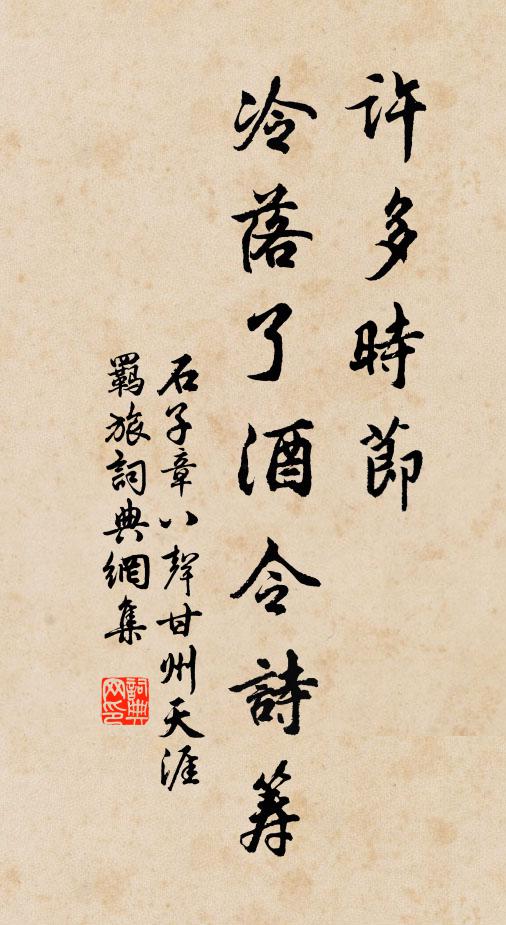 許多時節
冷落了酒令詩筹
石子章八聲甘州天涯
羈旅詞典網集
詞典
网印